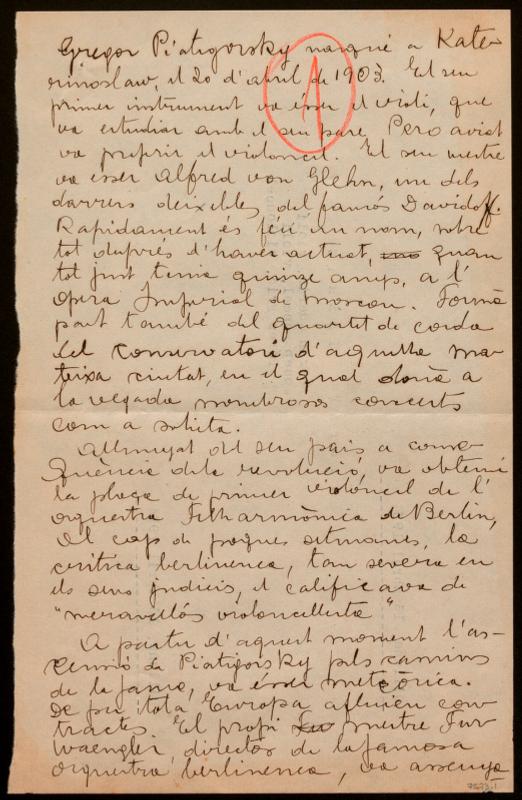 Gregor Piatigorsky nasqué a Kate-
rinoslaw, el 20 d'abril de 1903. El seu
primer instrument va ésser el violí, que
va estudiar amb el seu pare. Pero aviat
va preferir el violoncel. El seu mestre
va ésser Alfred von Glehn, un dels
darrers deixebles del famós Davidoff.
Rapidament és féu un nom, sobre
tot després d'haver actuat, quan
tot just tenia quinze anys, a l'
Opera Imperial de Moscou. Formà
part també del quartet de corda
del conservatori d'aquella ma-
teixa ciutat, en el qual donà a
la vegada nombrosos concerts
com a solista.
Allunyat del seu pais a conse-
quència de la revolució, va obtenir
la plaça de primer violóncel de l'
orquestra Filharmònica de Berlin,
Al cap de poques setmanes, la
crítica berlinenca, tan severa en
els seus judicis, el calificava de
"meravellós violoncellista"
A partir d'aquest moment l'as-
censió de Piatigorsky pels camins
de la fama, va ésser meteòrica.
De per tota Europa afluien con-
tractes. El propi mestre Fur-
waengler, director de la famosa
orquestra berlinenca, va assenya-
1
7573.1